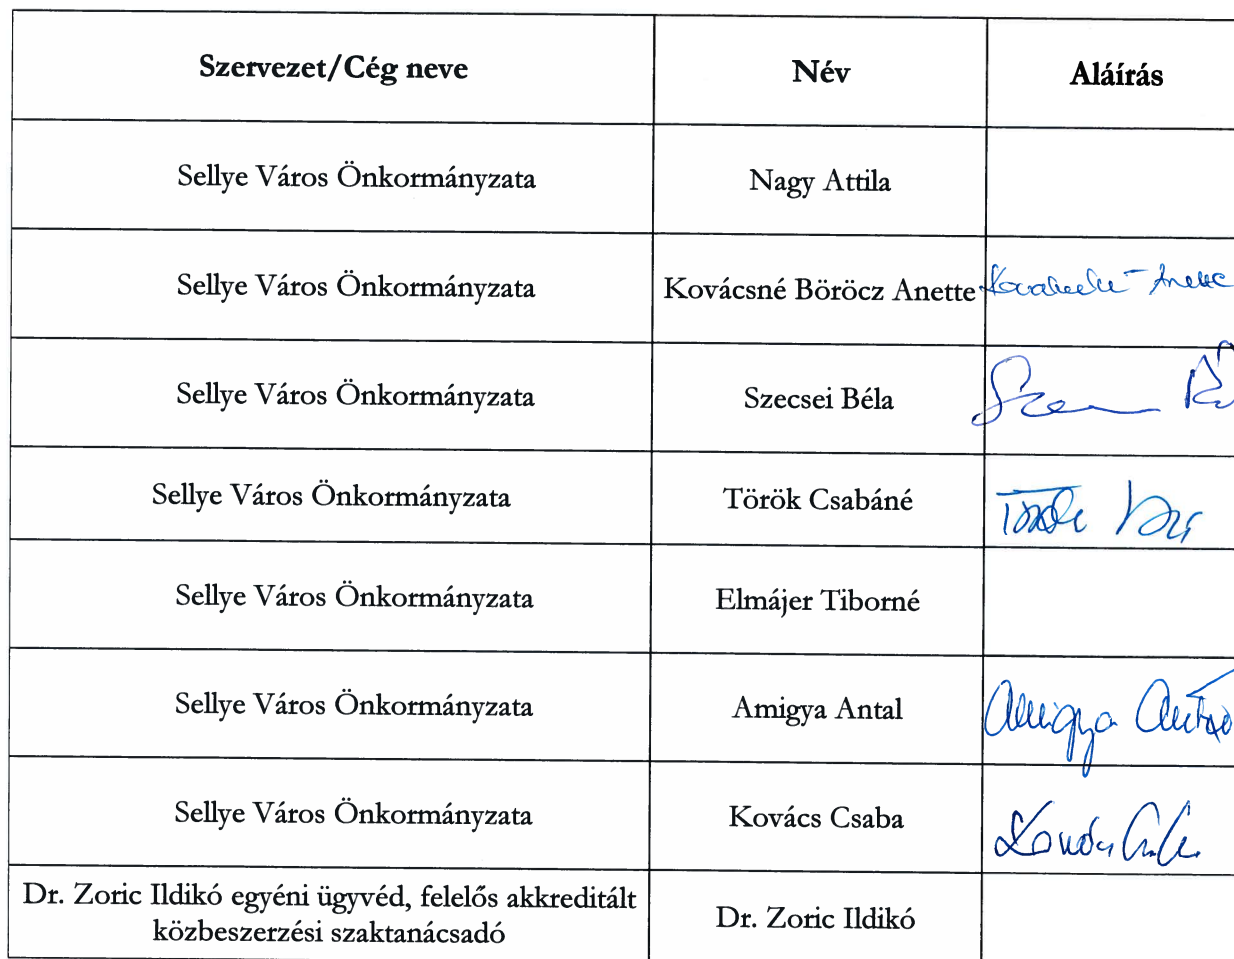 Szervezet/Cég neve Név Aláírás
Sellye Város Önkormányzata Nagy Attila
Sellye Város Önkormányzata Kovácsné Böröcz Anette
Sellye Város Önkormányzata Szecsei Béla
Sellye Város Önkormányzata Török Csabáné
Sellye Város Önkormányzata Elmájer Tiborné
Sellye Város Önkormányzata Amigya Antal Amigya Antal
Sellye Város Önkormányzata Kovács Csaba
Dr. Zoric Ildikó egyéni ügyvéd, felelős akkreditált
közbeszerzési szaktanácsadó Dr. Zoric Ildikó